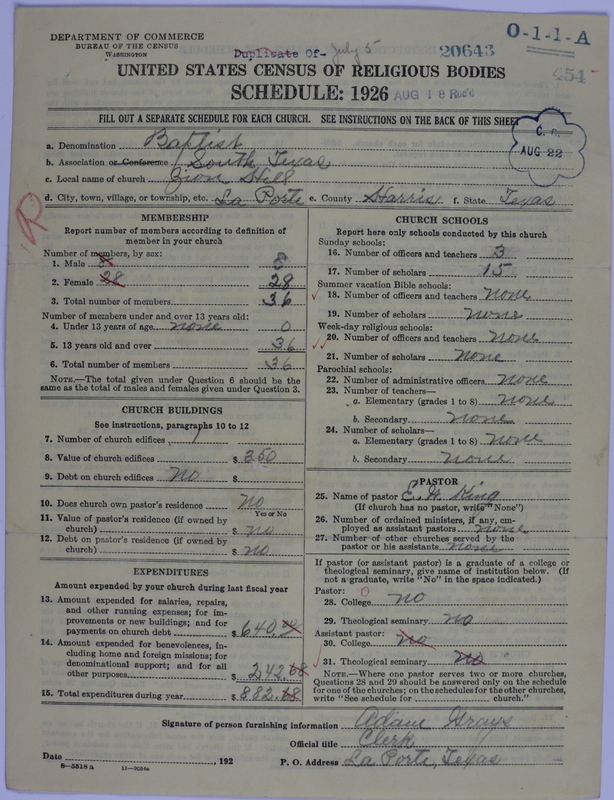 DEPARTMENT OF COMMERCE
BUREAU OF THE CENSUS
WASHINGTON
Duplicate Of- July 5
20643
O-1-1-A
454
UNITED STATES CENSUS OF RELIGIOUS BODIES
SCHEDULE: 1926
AUG 18 Rec'd
FILL OUT A SEPARATE SCHEDULE FOR EACH CHURCH. SEE INSTRUCTIONS ON THE BACK OF THIS SHEET
AUG 22
a. Denomination Baptist
b. Association or Conference South Texas
c. Local name of church Zion Hill
d. City, town, village, or township, etc. La Porte e. County Harris f. State Texas
R
MEMBERSHIP
Report number of members according to definition of
member in your church
Number of members, by sex:
1. Male 8 8
2. Female 28 28
3. Total number of members 36
Number of members under and over 13 years old:
4. Under 13 years of age none 0
5. 13 years old and over 36
6. Total number of members 36
NOTE.—The total given under Question 6 should be
the same as the total of males and females given under Question 3.
CHURCH BUILDINGS
See instructions, paragraphs 10 to 12
7. Number of church edifices 1
8. Value of church edifices $ 350
9. Debt on church edifices No $
10. Does church own pastor's residence No
Yes or No
11. Value of pastor's residence (if owned by
church) $ no
12. Debt on pastor's residence (if owned by
church) $ no
EXPENDITURES
Amount expended by your church during last fiscal year
13. Amount expended for salaries, repairs,
and other running expenses; for im-
provements or new buildings; and for
payments on church debt $ 640.00
14. Amount expended for benevolences, in-
cluding home and foreign missions; for
denominational support; and for all
other purposes $ 242.68
15. Total expenditures during year $ 882.68
CHURCH SCHOOLS
Report here only schools conducted by this church
Sunday schools:
16. Number of officers and teachers 3
17. Number of scholars 15
Summer vacation Bible schools:
18. Number of officers and teachers none
19. Number of scholars none
Week-day religious schools:
20. Number of officers and teachers none
21. Number of scholars none
Parochial schools:
22. Number of administrative officers none
23. Number of teachers—
a. Elementary (grades 1 to 8) none
b. Secondary none
24. Number of scholars—
a. Elementary (grades 1 to 8) none
b. Secondary none
PASTOR
25. Name of pastor E. H. King
(If church has no pastor, write "None")
26. Number of ordained ministers, if any, em-
ployed as assistant pastors none
27. Number of other churches served by the
pastor or his assistants none
If pastor (or assistant pastor) is a graduate of a college or
theological seminary, give name of institution below. (If
not a graduate, write "No" in the space indicated.)
Pastor:
28. College no
29. Theological seminary no
Assistant pastor:
30. College no
31. Theological seminary no
NOTE.—Where one pastor serves two or more churches,
Questions 28 and 29 should be answered only on the schedule
for one of the churches; on the schedules for the other churches,
write "See schedule for church."
Signature of person furnishing information Adam Grays
Official title Clerk
Date , 192 P. O. Address La Porte, Texas
8—5518 a 11—9034a